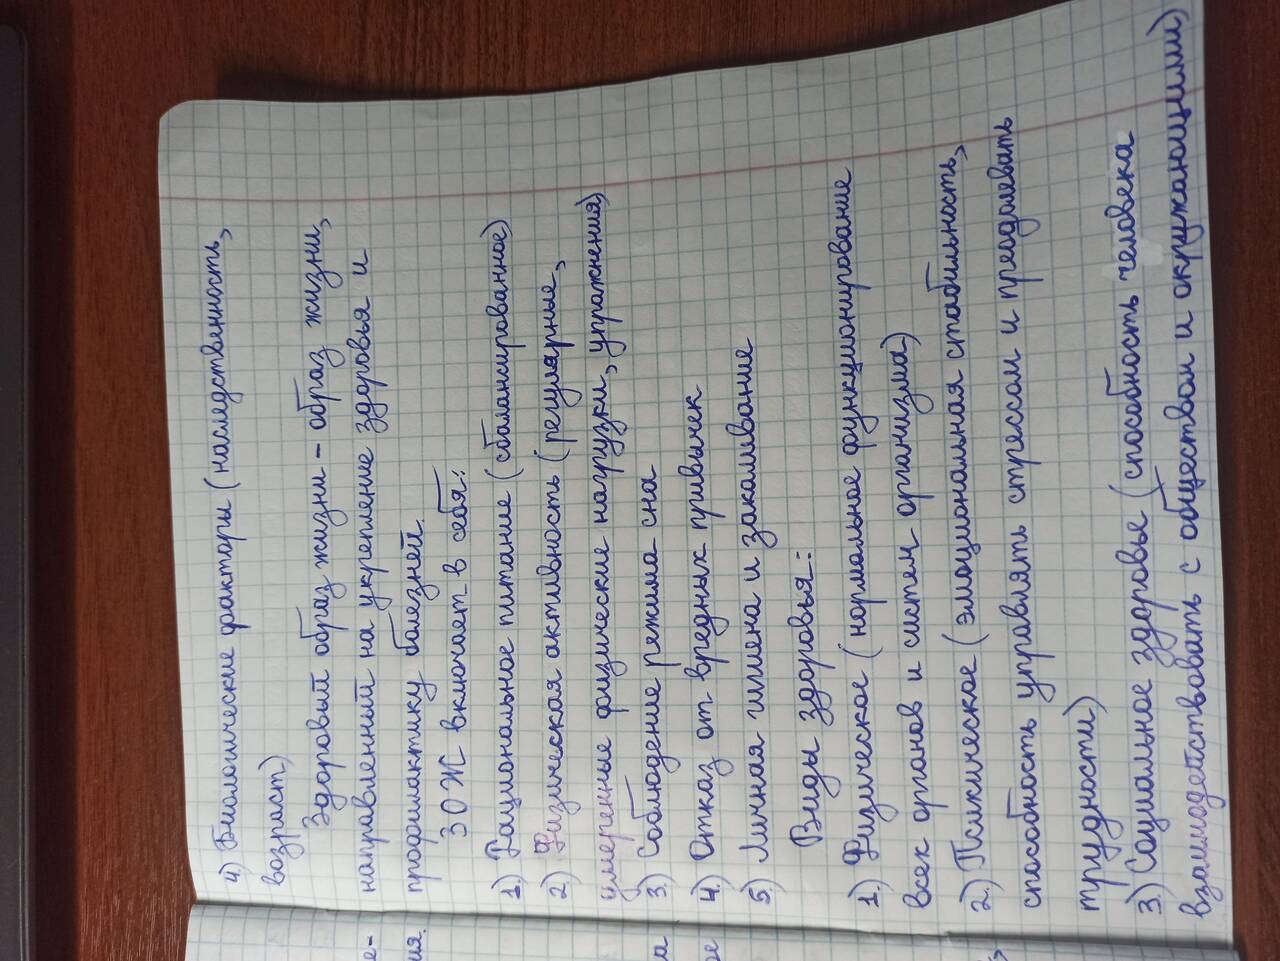 4) Биологические факторы (наследственность,
возраст)
Здоровый образ жизни - образ жизни,
направленный на укрепление здоровья и
профилактику болезней.
ЗОЖ включает в себя:
1) Рациональное питание (сбалансированное)
2) Физическая активность (регулярные,
умеренные физические нагрузки, упражнения)
3) Соблюдение режима сна
4.) Отказ от вредных привычек
5) Личная гигиена и закаливание
Виды здоровья:
1.) Физическое (нормальное функционирование
всех органов и систем организма)
2.) Психическое (эмоциональная стабильность,
способность управлять стрессом и преодлевать
трудности)
3) Социальное здоровье (способность человека
взаимодействовать с обществом и окружающими)
е-
ия.
ра
ое